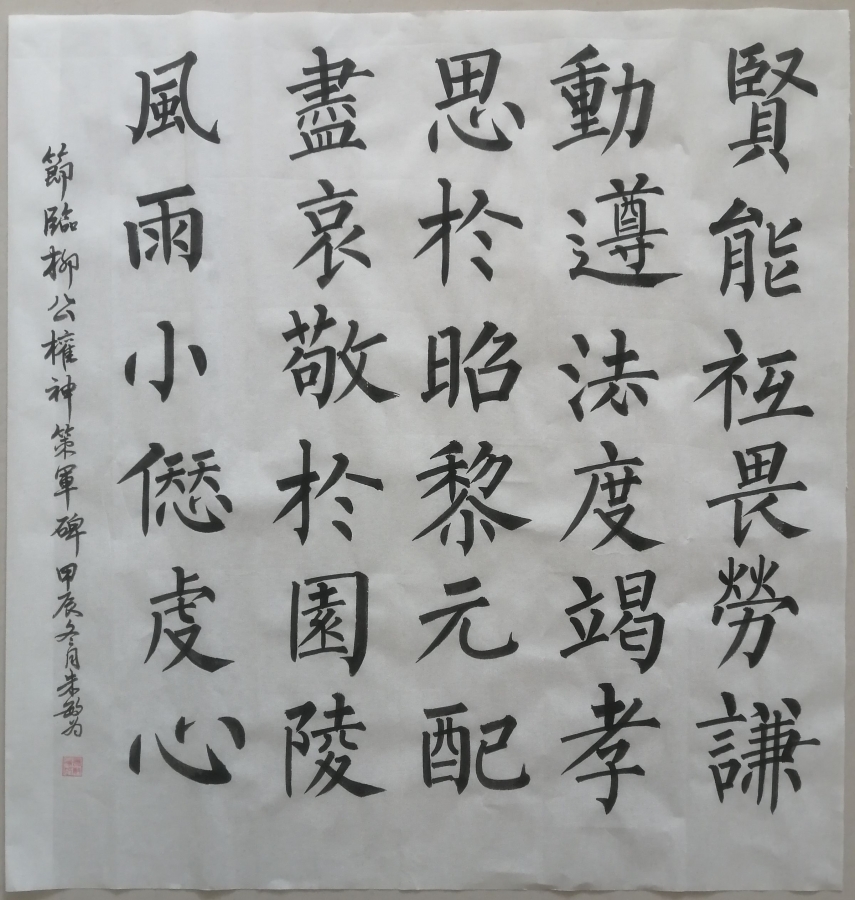 賢能祗畏勞謙
動遵法度竭孝
思於昭黎元配
盡哀敬於園陵
風雨小愆虔心
節臨柳公權神策軍碑 甲辰冬月朱敏